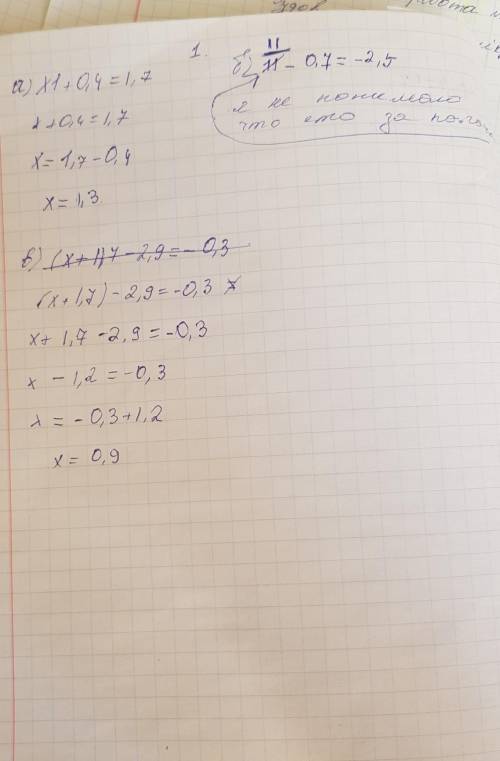 1.
а) х1 + 0,4 = 1,7
х + 0,4 = 1,7
х = 1,7 - 0,4
х = 1,3
б) 11 - 0,7 = -2,5
я не
что ето за
в) (х + 1)7 - 2,9 = - 0,3
(х + 1,7) - 2,9 = -0,3
х + 1,7 - 2,9 = -0,3
х - 1,2 = -0,3
х = - 0,3 + 1,2
х = 0,9